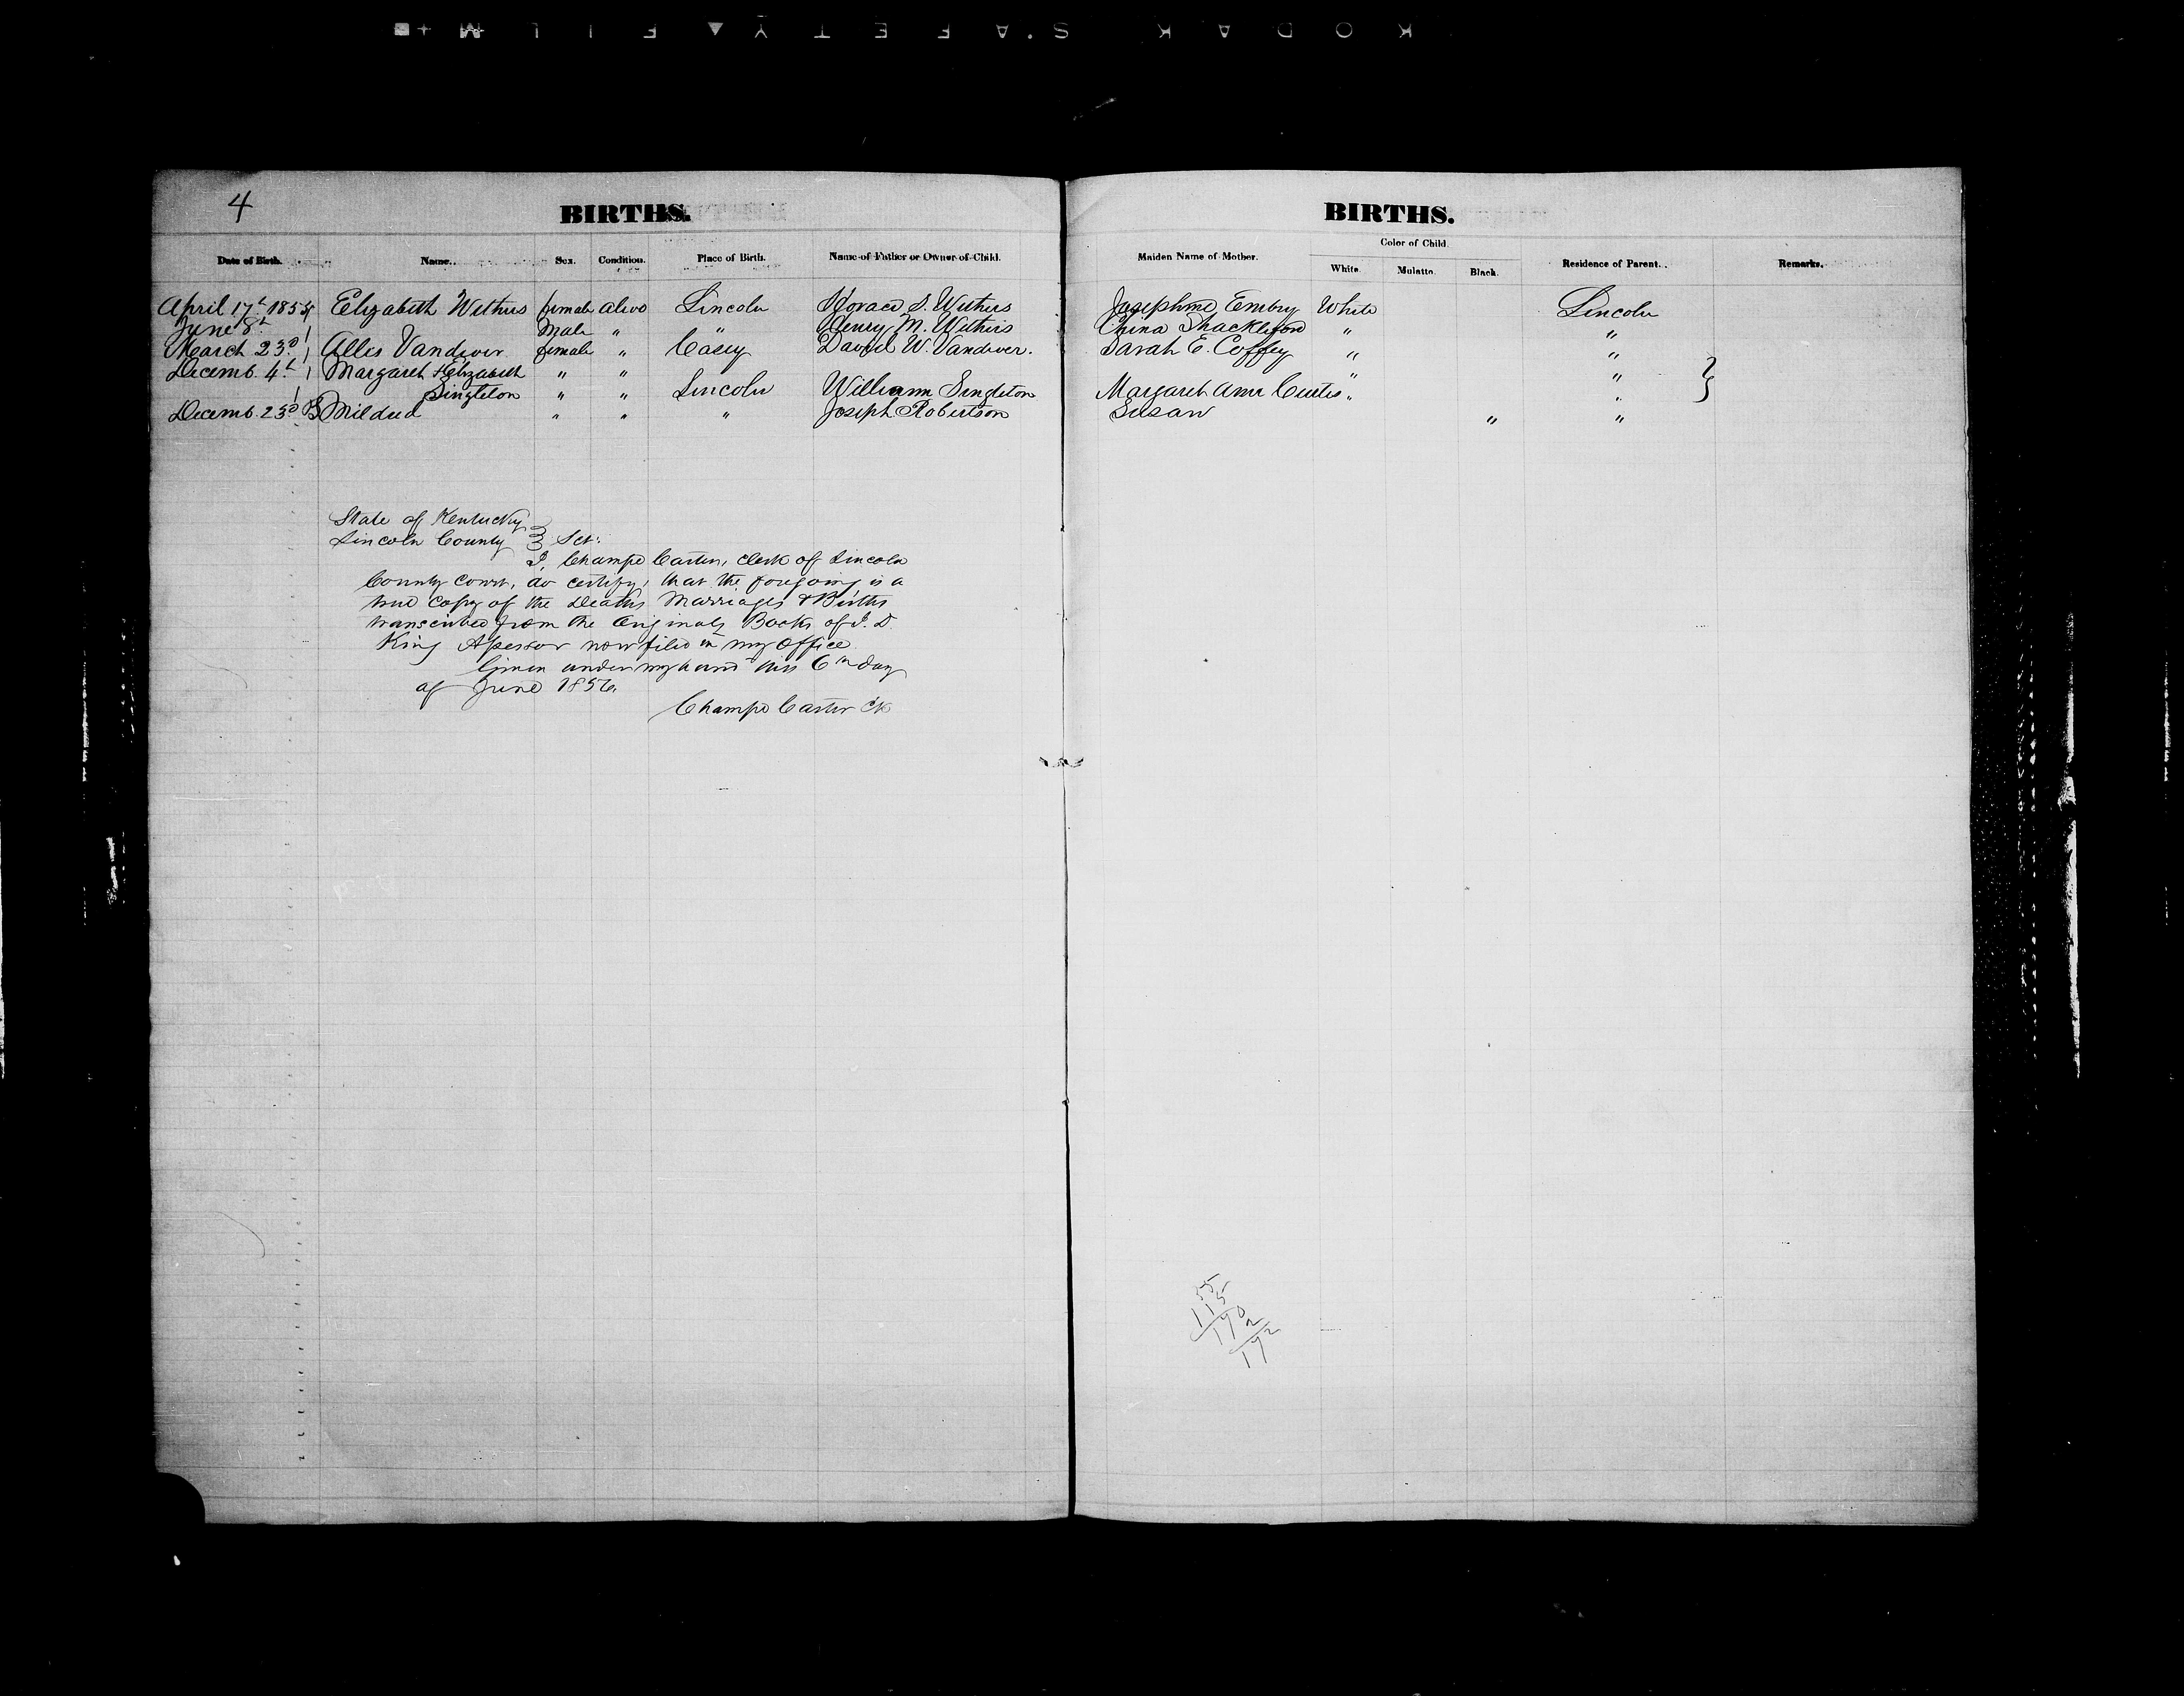 KODAK SAFETY FILM
4
BIRTHS.
Date of Birth. Name. Sex. Condition. Place of Birth. Name of Father or Owner of Child.
April 17th 1854 Elizabeth Withers female alive Lincoln Horace S. Withers
June 8th " Male " " Henry M. Withers
March 23d " Alles Vandiver female " Casey David W. Vandiver.
Decemb. 4th " Margaret Elizabeth " "
Singleton " " Lincoln William Singleton
Decemb. 23d Mildred " " " Joseph Robertson
State of Kentucky
Lincoln County } Sct:
I, Champe Carter, clerk of Lincoln
County Court, do certify, that the foregoing is a
true copy of the Deaths Marriages & Births
transcribed from the Originals Books of J. D.
King Assessor now filed in my office
Given under my hand this 6th day
of June 1856.
Champe Carter Clk
BIRTHS.
Maiden Name of Mother. Color of Child. Residence of Parent. Remarks.
White. Mulatto. Black.
Josephine Embry White Lincoln
China Shackleford " "
Sarah E. Coffey " "
" "
Margaret Ann Curtis " " }
Susan " "
55
115
170
2
172